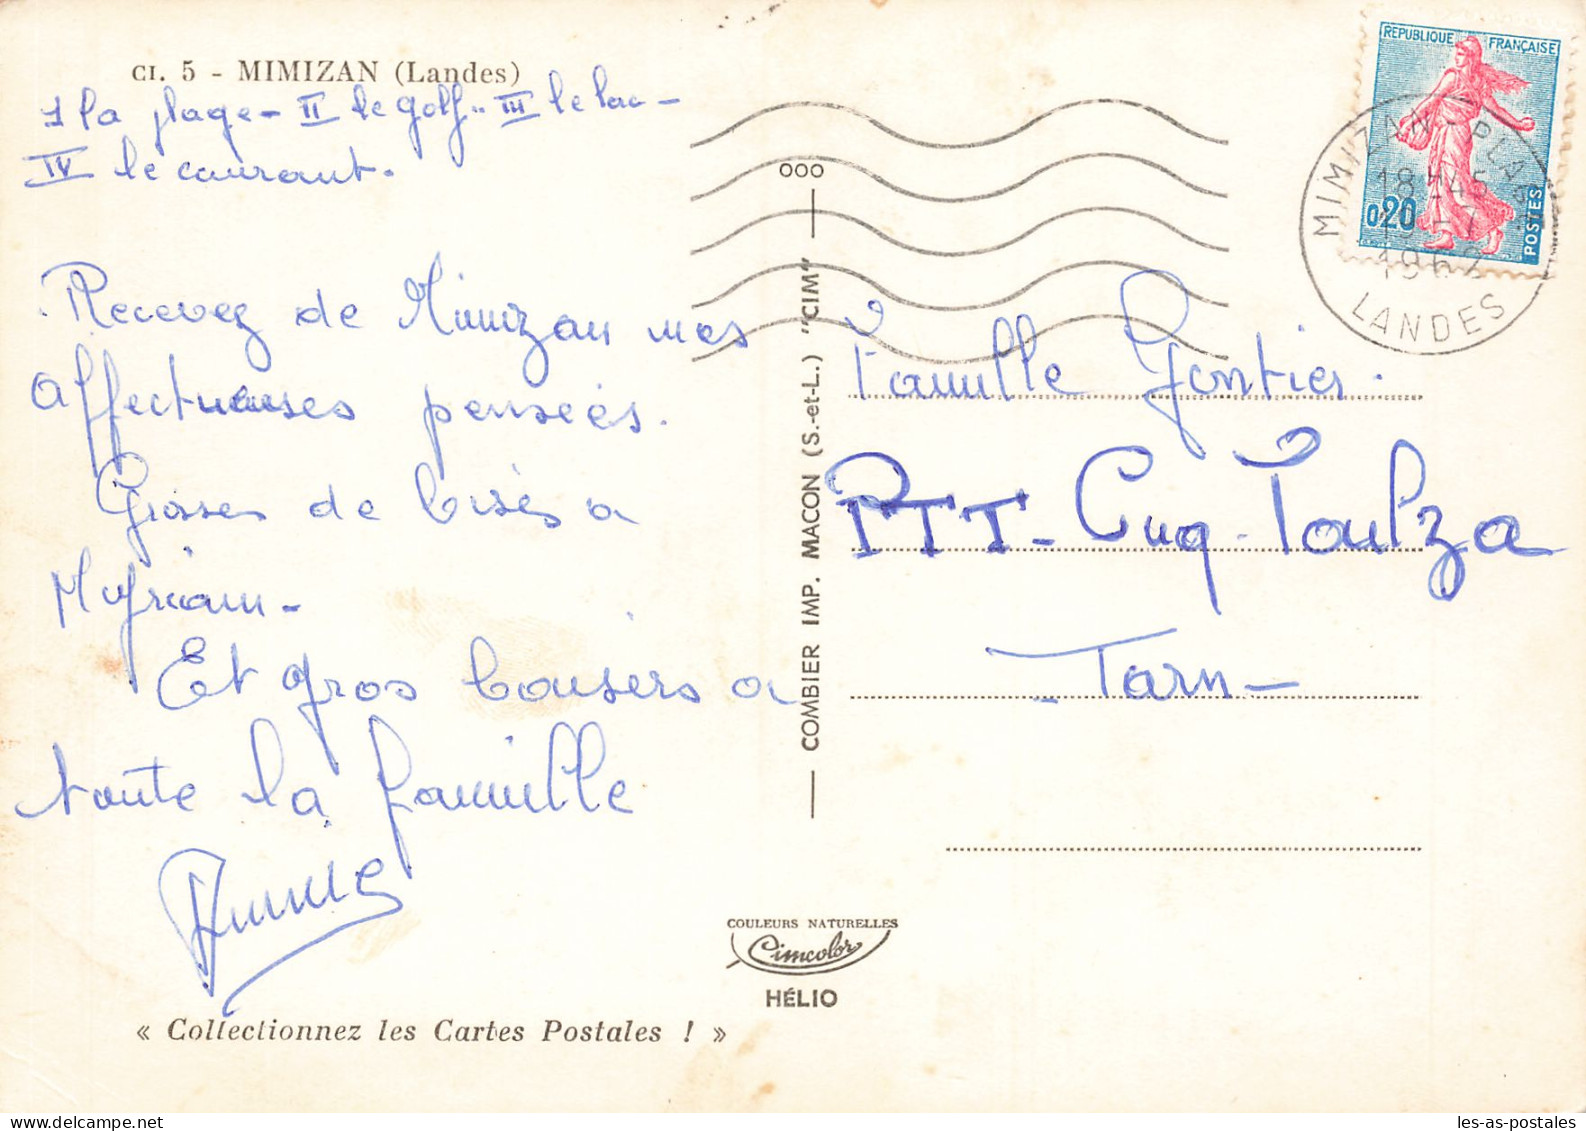 CI. 5 - MIMIZAN (Landes)
I la plage - II le golf - III le lac -
IV le courant.
Recevez de Mimizan mes
affectueuses pensées.
Grosses de bises a
Myriam -
Et gros baisers a
toute la famille
« Collectionnez les Cartes Postales ! »
COMBIER IMP. MACON (S.-et-L.) "CIM"
COULEURS NATURELLES
Cimcolor
HÉLIO
REPUBLIQUE FRANÇAISE
0,20
POSTES
MIMIZAN - PLAGE
18H45
1962
LANDES
000
Famille Gontier.
PTT - Cuq-Toulza
Tarn -
www.delcampe.net
les-as-postales